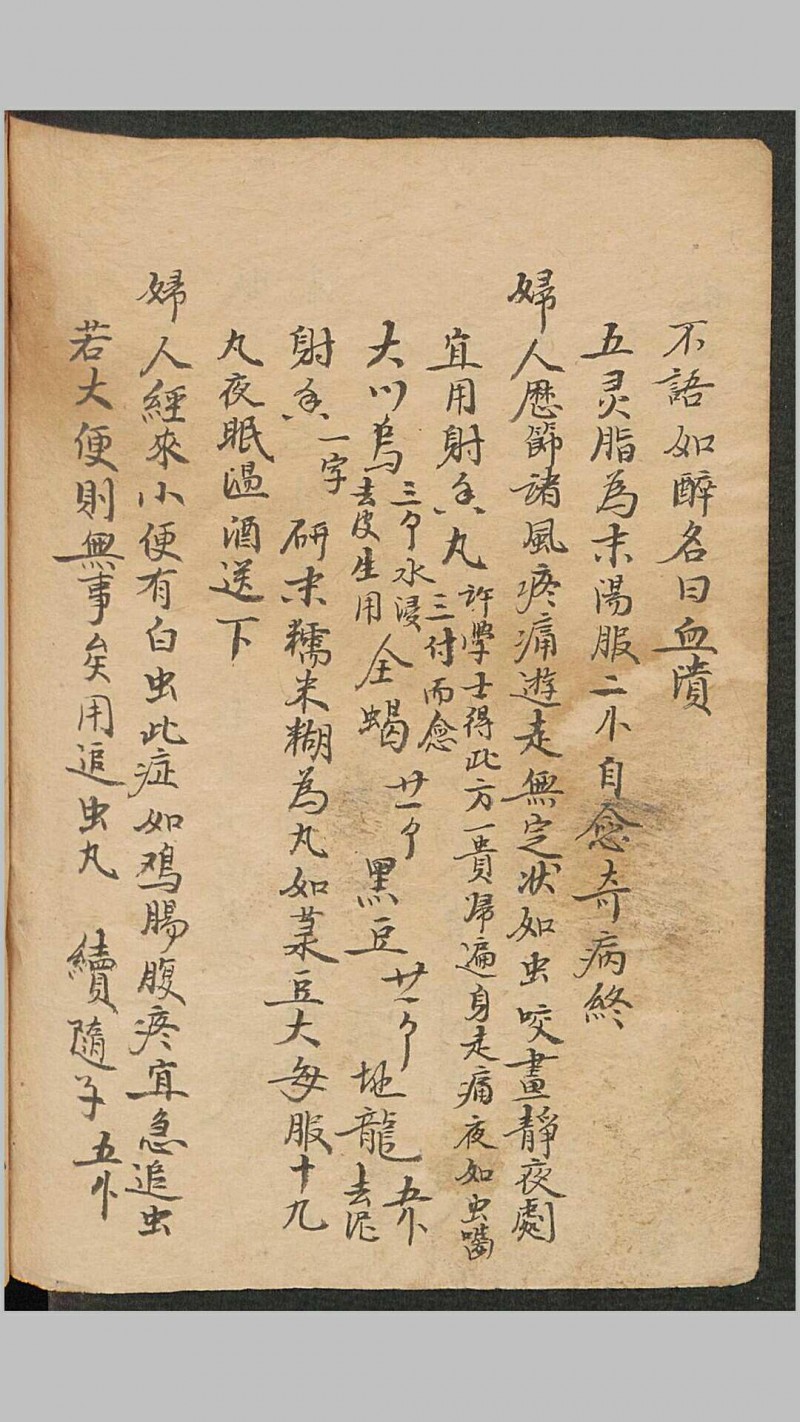 不語如醉名曰血潰
五灵脂為末湯服二卜自愈奇病終
婦人歷節諸風疼痛遊走無定狀如虫咬晝靜夜劇
宜用射香丸許學士得此方一貴婦遍身走痛夜如虫嚙三付而愈
大川烏三个水浸去皮生用 全蝎廿一个 黑豆廿一个 地龍五卜去泥
射香一字 研末糯米糊為丸如菉豆大每服十九
丸夜眠温酒送下
婦人經來小便有白虫此症如鸡腸腹疼宜急追虫
若大便則無事矣用追虫丸 續隨子五卜